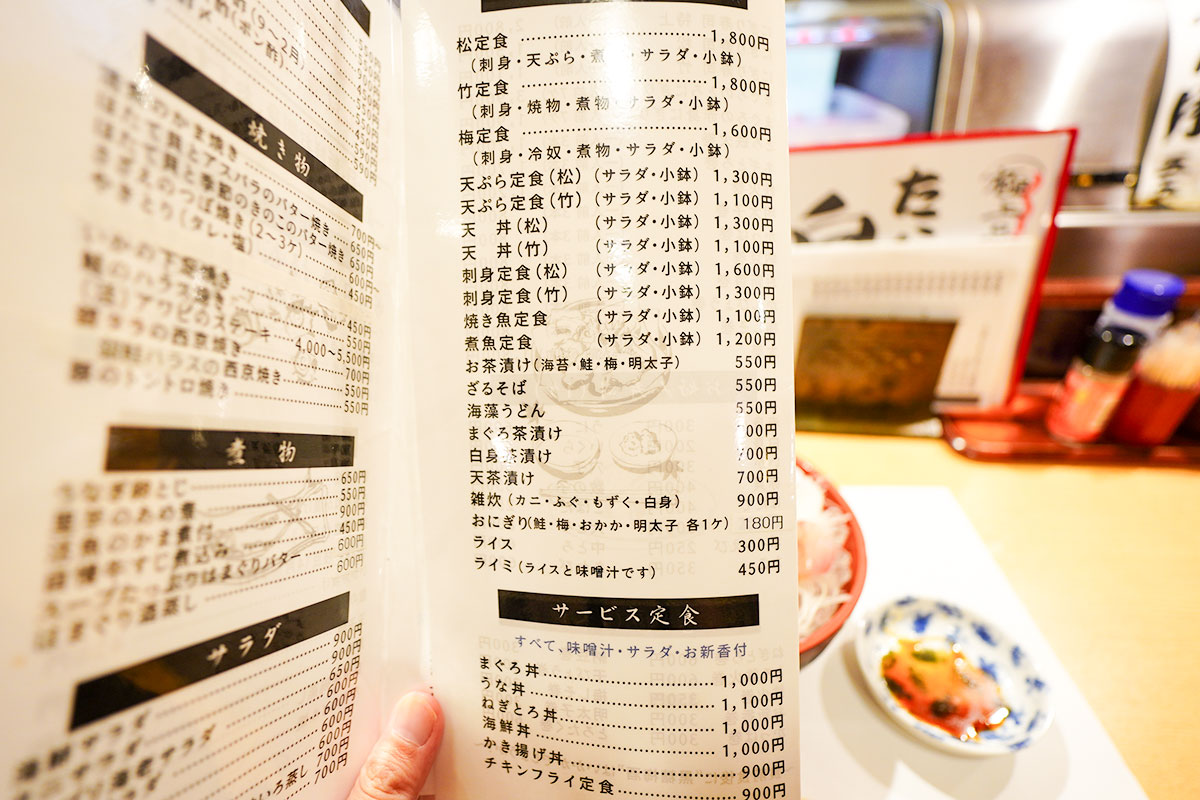 (9〜2月)
(ポン酢)
焼き物
のかま焼き
ほたて貝とアスパラのバター焼き 700円
ほたて貝と季節のきのこのバター焼き 650円
さざえのつぼ焼き(2〜3ケ) 650円
やきとり(タレ・塩) 600円
450円
いかの下足焼き 450円
鮭のハラス焼き 550円
(活)アワビのステーキ 4,000〜5,500円
銀ダラの西京焼き 700円
銀鮭ハラスの西京焼き 550円
豚のトントロ焼き 550円
煮物
うなぎ卵とじ 650円
550円
のかま煮付 900円
牛すじ煮込み 450円
スープたっぷりはまぐりバター 600円
はまぐり酒蒸し 600円
サラダ
海鮮サラダ 900円
サラダ 900円
650円
600円
600円
600円
700円
700円
松定食 1,800円
(刺身・天ぷら・煮物・サラダ・小鉢)
竹定食 1,800円
(刺身・焼物・煮物・サラダ・小鉢)
梅定食 1,600円
(刺身・冷奴・煮物・サラダ・小鉢)
天ぷら定食(松) (サラダ・小鉢) 1,300円
天ぷら定食(竹) (サラダ・小鉢) 1,100円
天 丼(松) (サラダ・小鉢) 1,300円
天 丼(竹) (サラダ・小鉢) 1,100円
刺身定食(松) (サラダ・小鉢) 1,600円
刺身定食(竹) (サラダ・小鉢) 1,300円
焼き魚定食 (サラダ・小鉢) 1,100円
煮魚定食 (サラダ・小鉢) 1,200円
お茶漬け(海苔・鮭・梅・明太子) 550円
ざるそば 550円
海藻うどん 550円
まぐろ茶漬け 700円
白身茶漬け 700円
天茶漬け 700円
雑炊(カニ・ふぐ・もずく・白身) 900円
おにぎり(鮭・梅・おかか・明太子 各1ケ) 180円
ライス 300円
ライミ(ライスと味噌汁です) 450円
サービス定食
すべて、味噌汁・サラダ・お新香付
まぐろ丼 1,000円
うな丼 1,100円
ねぎとろ丼 1,000円
海鮮丼 1,000円
かき揚げ丼 900円
チキンフライ定食 900円